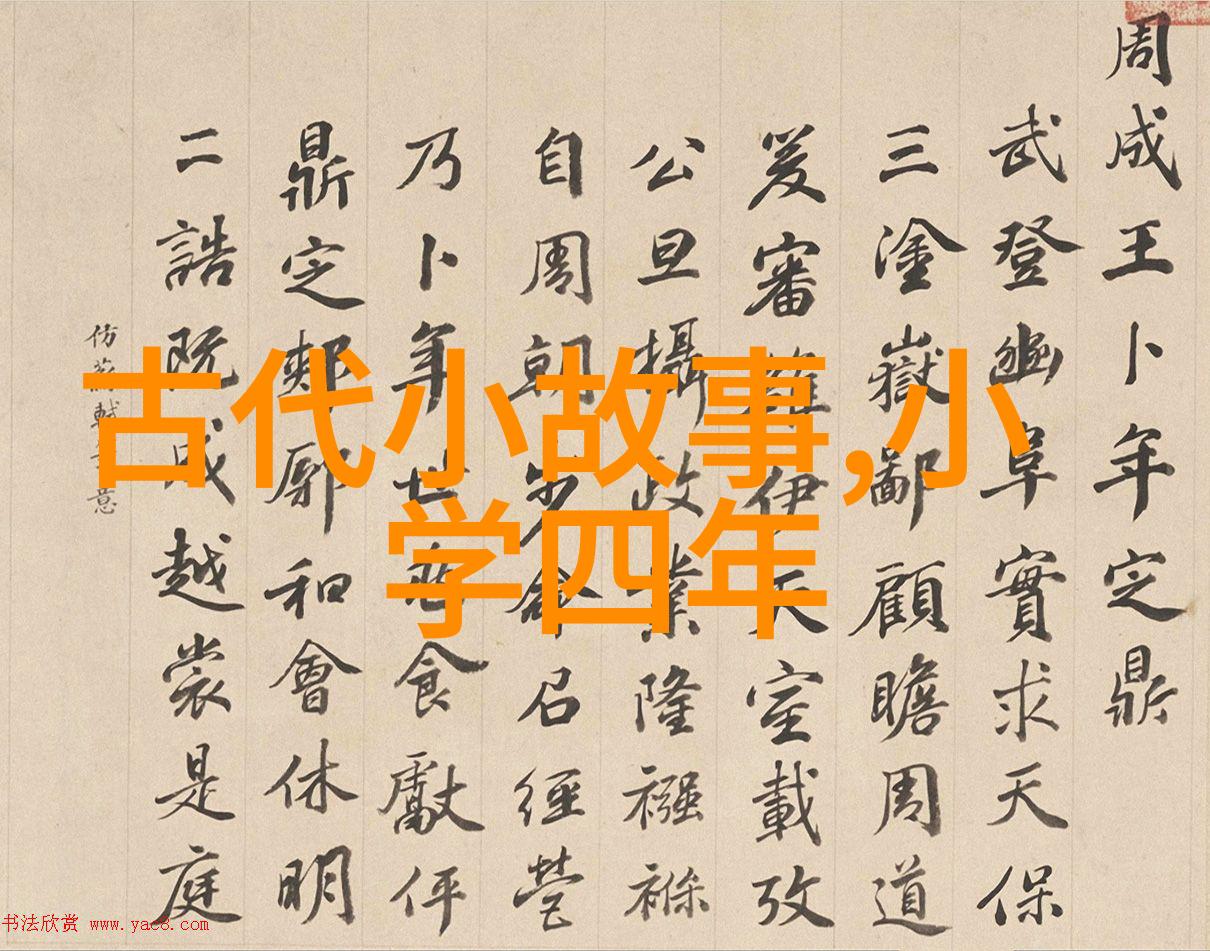 古代小故事,小
学四年
周成王卜年定鼎
武登豳阜實求天保
三塗嶽鄙顧瞻周道
爰審伊天室載攷
公旦攝政業隆襁褓
自周朝步命召經營
乃卜年世食獻伻
鼎定郟鄏和會休明
二誥既成越裳是庭
仿軾意
书法欣赏 www.yac8.com